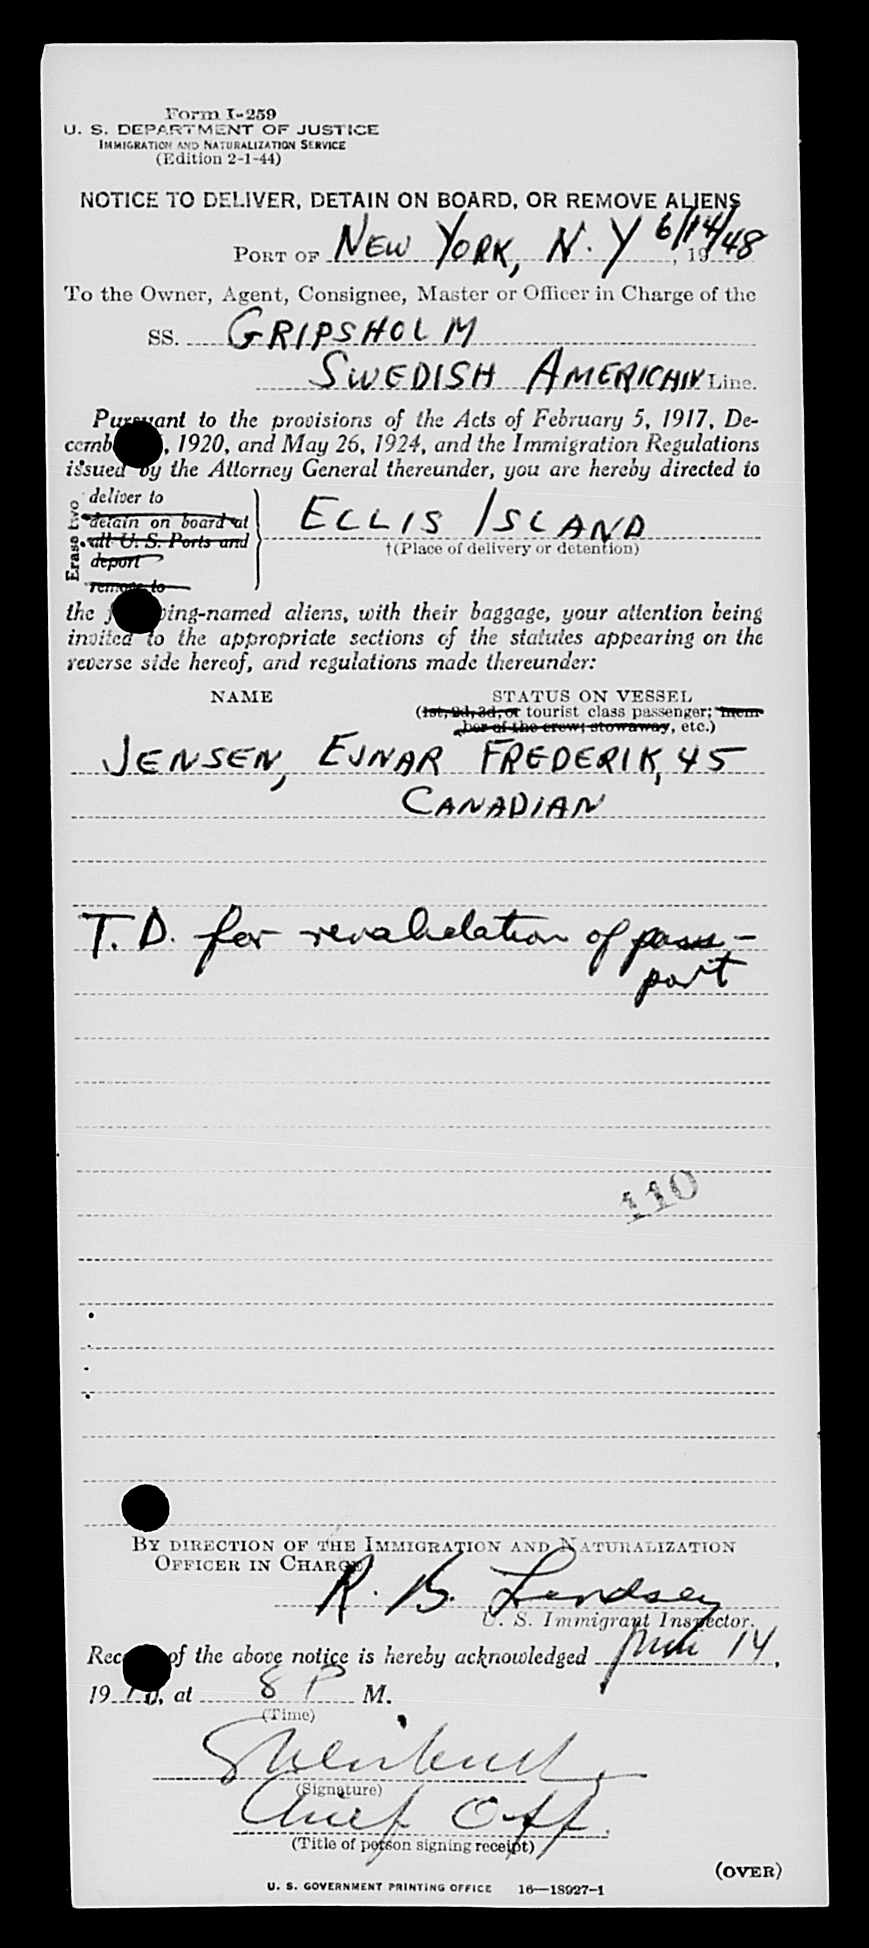 Form I-259
U. S. DEPARTMENT OF JUSTICE
IMMIGRATION AND NATURALIZATION SERVICE
(Edition 2-1-44)
NOTICE TO DELIVER, DETAIN ON BOARD, OR REMOVE ALIENS
PORT OF NEW YORK, N. Y 6/14/48, 19
To the Owner, Agent, Consignee, Master or Officer in Charge of the
SS. GRIPSHOLM
SWEDISH AMERICAN Line.
Pursuant to the provisions of the Acts of February 5, 1917, De-
cemb , 1920, and May 26, 1924, and the Immigration Regulations
issued by the Attorney General thereunder, you are hereby directed to
Erase two
deliver to
detain on board at
all U. S. Ports and
deport
remove to
ELLIS ISLAND
†(Place of delivery or detention)
the f ing-named aliens, with their baggage, your attention being
invited to the appropriate sections of the statutes appearing on the
reverse side hereof, and regulations made thereunder:
NAME STATUS ON VESSEL
(1st, 2d, 3d, or tourist class passenger; mem-
ber of the crew; stowaway, etc.)
JENSEN, EJNAR FREDERIK, 45
CANADIAN
T. D. for revalidation of pass-
port
110
BY DIRECTION OF THE IMMIGRATION AND NATURALIZATION
OFFICER IN CHARGE
R. B. Lindsey
U. S. Immigrant Inspector.
Rec of the above notice is hereby acknowledged 14,
19 , at 8 P M.
(Time)
(Signature)
Chief Off.
(Title of person signing receipt)
(OVER)
U. S. GOVERNMENT PRINTING OFFICE 16—18927-1